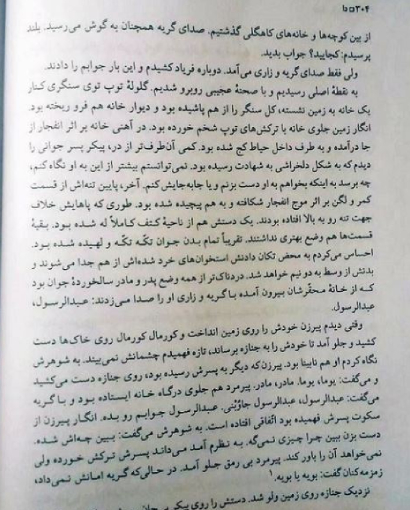 ۳۰۴ □ دا
از بین کوچه‌ها و خانه‌های کاهگلی گذشتیم. صدای گریه همچنان به گوش می‌رسید. بلند
پرسیدم: کجایید؟ جواب بدید.
ولی فقط صدای گریه و زاری می‌آمد. دوباره فریاد کشیدم و این بار جوابم را دادند.
به نقطهٔ اصلی رسیدیم و با صحنهٔ عجیبی روبرو شدیم. گلولهٔ توپ توی سنگری کنار
یک خانه به زمین نشسته، کل سنگر را از هم پاشیده بود و دیوار خانه هم فرو ریخته بود.
انگار زمین جلوی خانه با ترکش‌های توپ شخم خورده بود. در آهنی خانه بر اثر انفجار از
جا درآمده و به طرف داخل حیاط کج شده بود. کمی آن‌طرف‌تر از در، پیکر پسر جوانی را
دیدم که به شکل دلخراشی به شهادت رسیده بود. نمی‌توانستم بیشتر از این به او نگاه کنم،
چه برسد به اینکه بخواهم به او دست بزنم و یا جابه‌جایش کنم. آخر، پایین تنه‌اش از قسمت
کمر و لگن بر اثر موج انفجار شکافته و به هم پیچیده شده بود. طوری که پاهایش خلاف
جهت تنه رو به بالا افتاده بودند. یک دستش هم از ناحیهٔ کتف کاملاً له شده بود. بقیهٔ
قسمت‌ها هم وضع بهتری نداشتند. تقریباً تمام بدن جوان تکه تکه و لهیده شده بود.
احساس می‌کردم به محض تکان دادنش استخوان‌های خرد شده‌اش از هم جدا می‌شوند و
بدنش از وسط به دو نیم خواهد شد. دردناک‌تر از همه وضع پدر و مادر سالخوردهٔ جوان بود
که از خانهٔ محقرشان بیرون آمده با گریه و زاری او را صدا می‌زدند: عبدالرسول،
عبدالرسول.
وقتی دیدم پیرزن خودش را روی زمین انداخت و کورمال کورمال روی خاک‌ها دست
کشید و جلو آمد تا خودش را به جنازه برساند، تازه فهمیدم چشمانش نمی‌بیند. به شوهرش
نگاه کردم او هم نابینا بود. پیرزن که دیگر به پسرش رسیده بود، روی جنازه دست می‌کشید
و می‌گفت: یوما، یوما. مادر، مادر. پیرمرد هم جلوی درگاه خانه ایستاده بود و با گریه
می‌گفت: عبدالرسول، عبدالرسول جاؤبْنی. عبدالرسول جوابم رو بده. انگار پیرزن از
سکوت پسرش فهمیده بود اتفاقی افتاده است. به شوهرش می‌گفت: ببین چه‌اش شده.
دست بزن ببین چرا چیزی نمی‌گه. به نظرم آمد می‌داند پسرش ترکش خورده ولی
نمی‌خواهد آن را باور کند. پیرمرد بی رمق جلو آمد. در حالی‌که گریه امانش نمی‌داد،
زمزمه‌کنان گفت: بویه یا بویه.
نزدیک جنازه روی زمین ولو شد. دستش را روی پیکر